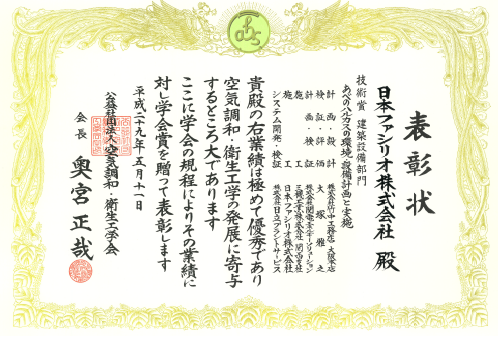 表彰状
日本ファシリオ株式会社 殿
技術賞 建築設備部門
あべのハルカスの環境・設備計画と実施
計画・設計 株式会社竹中工務店 大阪本店
検証・評価 大塚雅之
計画・検証
施工 三機工業株式会社 関西支社
施工 日本ファシリオ株式会社
システム開発・検証 株式会社日立プラントサービス
貴殿の右業績は極めて優秀であり
空気調和・衛生工学の発展に寄与
するところ大であります
ここに学会の規程によりその業績に
対し学会賞を贈って表彰します
平成二十九年五月十一日
公益社団法人空気調和・衛生工学会
会長 奥宮正哉